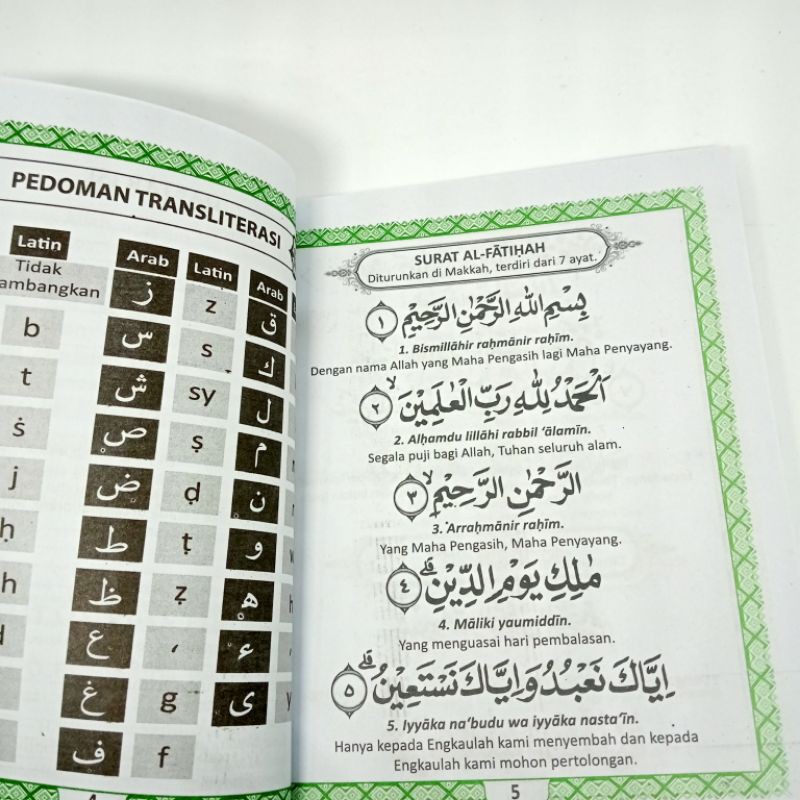 PEDOMAN TRANSLITERASI
Latin Arab Latin Arab
Tidak
ambangkan ز z ق
b س s ك
t ش sy ل
ṡ ص ṣ م
j ض ḍ ن
ḥ ط ṭ و
h ظ ẓ ه
d ع ‘ ء
غ g ي
ف f
4
SURAT AL-FĀTIḤAH
Diturunkan di Makkah, terdiri dari 7 ayat.
بِسْمِ اللّٰهِ الرَّحْمٰنِ الرَّحِيْمِ ١
1. Bismillāhir raḥmānir raḥīm.
Dengan nama Allah yang Maha Pengasih lagi Maha Penyayang.
اَلْحَمْدُ لِلّٰهِ رَبِّ الْعٰلَمِيْنَۙ ٢
2. Alḥamdu lillāhi rabbil ‘ālamīn.
Segala puji bagi Allah, Tuhan seluruh alam.
الرَّحْمٰنِ الرَّحِيْمِۙ ٣
3. Arraḥmānir raḥīm.
Yang Maha Pengasih, Maha Penyayang.
مٰلِكِ يَوْمِ الدِّيْنِۗ ٤
4. Māliki yaumiddīn.
Yang menguasai hari pembalasan.
اِيَّاكَ نَعْبُدُ وَاِيَّاكَ نَسْتَعِيْنُۗ ٥
5. Iyyāka na‘budu wa iyyāka nasta‘īn.
Hanya kepada Engkaulah kami menyembah dan kepada
Engkaulah kami mohon pertolongan.
5